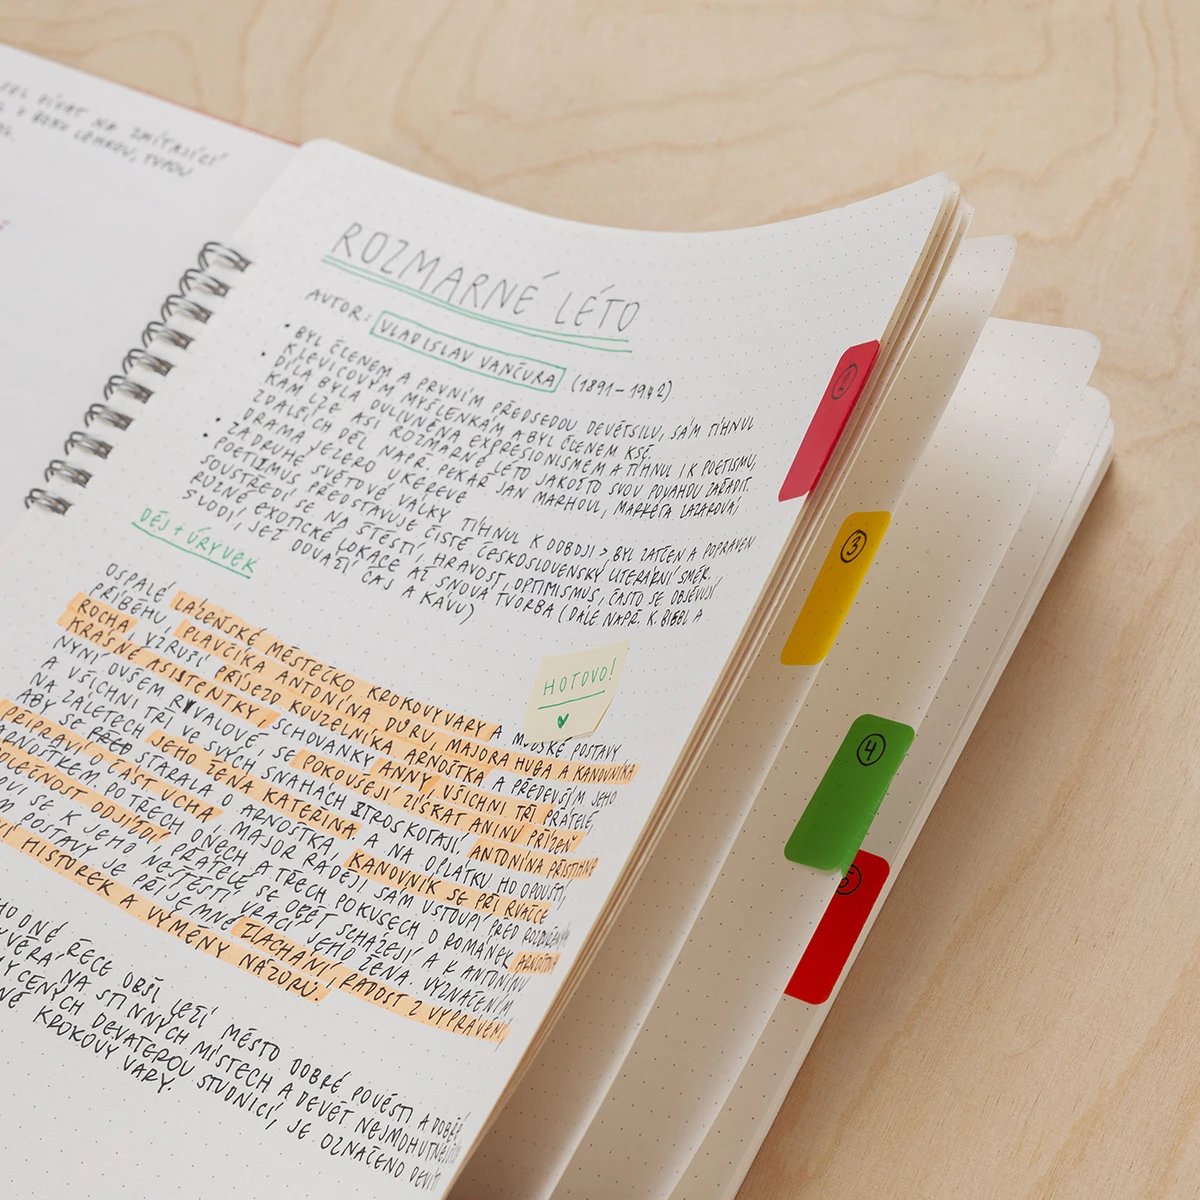 NA ZMÍTAJÍCÍ
ROZMARNÉ LÉTO
AUTOR: VLADISLAV VANČURA (1891-1942)
• BYL ČLENEM A PRVNÍM PŘEDSEDOU DEVĚTSILU, SÁM TÍHNUL
K LEVICOVÝM MYŠLENKÁM A BYL ČLENEM KSČ.
• DÍLA BYLA OVLIVNĚNA EXPRESIONISMEM A TÍHNUL I K POETISMU,
KAM LZE ASI ROZMARNÉ LÉTO JAKOŽTO SVOU POVAHOU ZAŘADIT.
Z DALŠÍCH DĚL NAPŘ. PEKAŘ JAN MARHOUL, MARKÉTA LAZAROVÁ,
DRAMA JEZERO UKEREVE
• ZA DRUHÉ SVĚTOVÉ VÁLKY TÍHNUL K ODBOJI > BYL ZATČEN A POPRAVEN
POETIZMUS PŘEDSTAVUJE ČISTĚ ČESKOSLOVENSKÝ LITERÁRNÍ SMĚR.
SOUSTŘEDÍ SE NA ŠTĚSTÍ, HRAVOST, OPTIMISMUS, ČASTO SE OBJEVUJÍ
RŮZNÉ EXOTICKÉ LOKACE AŽ SNOVÁ TVORBA (DÁLE NAPŘ. K. BIEBL A
S LODÍ, JEŽ DOVÁŽÍ ČAJ A KÁVU)
DĚJ + ÚRYVEK
OSPALÉ LÁZEŇSKÉ MĚSTEČKO, KROKOVY VARY A MUŽSKÉ POSTAVY
PŘÍBĚHU, PLAVČÍKA ANTONÍNA DŮRU, MAJORA HUGA A KANOVNÍKA
ROCHA, VZRUŠÍ PŘÍJEZD KOUZELNÍKA ARNOŠTKA A PŘEDEVŠÍM JEHO
KRÁSNÉ ASISTENTKY, SCHOVANKY ANNY, VŠICHNI TŘI PŘÁTELÉ,
NYNÍ OVŠEM RIVALOVÉ, SE POKOUŠEJÍ ZÍSKAT ANINU PŘÍZEŇ
A VŠICHNI TŘI VE SVÝCH SNAHÁCH ZTROSKOTAJÍ. ANTONÍNA PŘISTIHNE
NA ZÁLETECH JEHO ŽENA KATEŘINA. A NA OPLÁTKU HO OPOUŠTÍ,
ABY SE STARALA O ARNOŠTKA, KANOVNÍK SE PŘI RVAČCE
PŘIPRAVÍ O ČÁST UCHA MAJOR RADĚJI SÁM USTOUPÍ PŘED
ARNOŠTKEM. PO TŘECH DNECH A TŘECH POKUSECH O ROMÁNEK ARNOŠTKOVA
SPOLEČNOST ODJÍŽDÍ PŘÁTELÉ SE OPĚT SCHÁZEJÍ A K ANTONÍNU
SE K JEHO NEŠTĚSTÍ VRACÍ JEHO ŽENA. VÝZNAČNÝM
POSTAVY JE PŘÍJEMNÉ TLACHÁNÍ, RADOST Z VYPRÁVĚNÍ
HISTOREK A VÝMĚNY NÁZORŮ.
ONÉ ŘECE OBŠÍ LEŽÍ MĚSTO DOBRÉ POVĚSTI A DOBRÉ
NA STINNÝCH MÍSTECH A DEVĚT NEJMOHUTNĚJŠÍCH
DEVATEROU STUDNICÍ, JE OZNAČENO DEVÍTI
KROKOVY VARY.
HOTOVO!
2
3
4
5